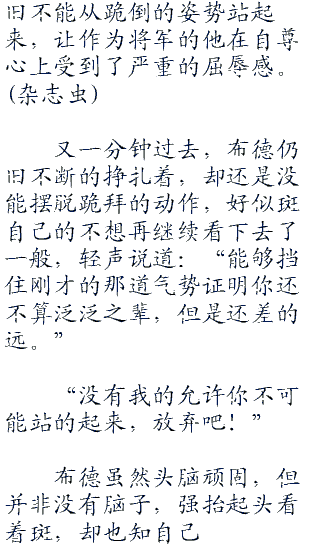 旧不能从跪倒的姿势站起
来，让作为将军的他在自尊
心上受到了严重的屈辱感。
(杂志虫)
又一分钟过去，布德仍
旧不断的挣扎着，却还是没
能摆脱跪拜的动作，好似斑
自己的不想再继续看下去了
一般，轻声说道：“能够挡
住刚才的那道气势证明你还
不算泛泛之辈，但是还差的
远。”
“没有我的允许你不可
能站的起来，放弃吧！”
布德虽然头脑顽固，但
并非没有脑子，强抬起头看
着斑，却也知自己